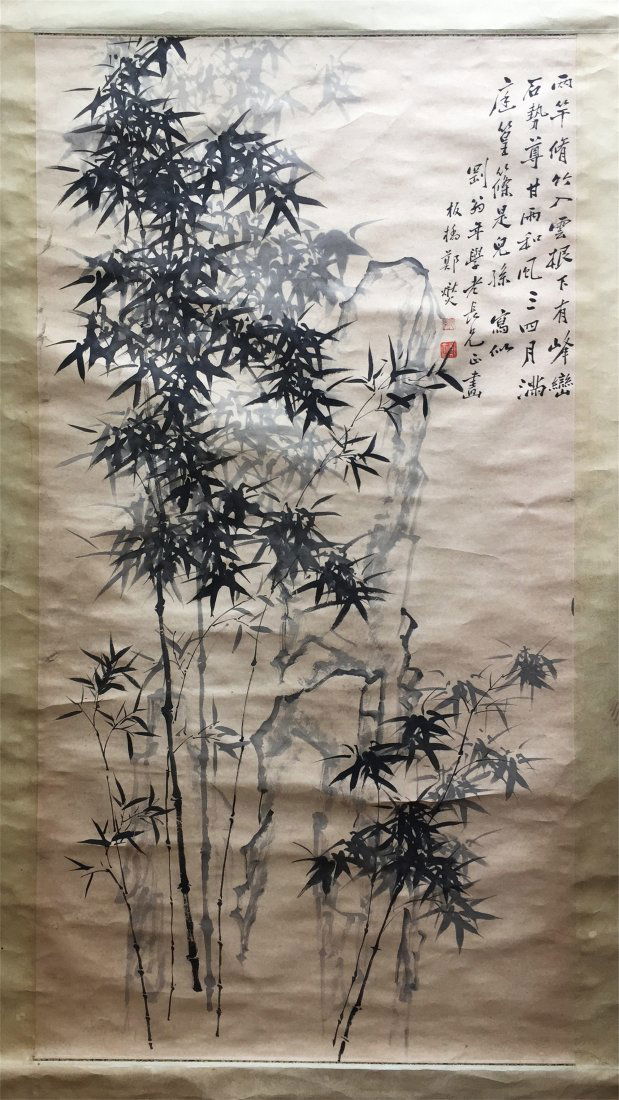 两竿脩竹入雲根下有峰巒
石勢尊甘雨和風三四月滿
庭篁篠是兒孫寫似
劉翁年學老長兄正畫
板橋鄭燮